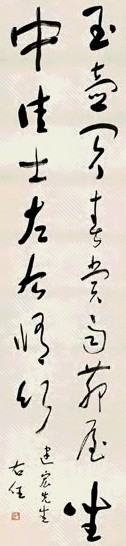 玉壺買春賞雨茆屋坐
中佳士左右修竹
建宏先生
右任